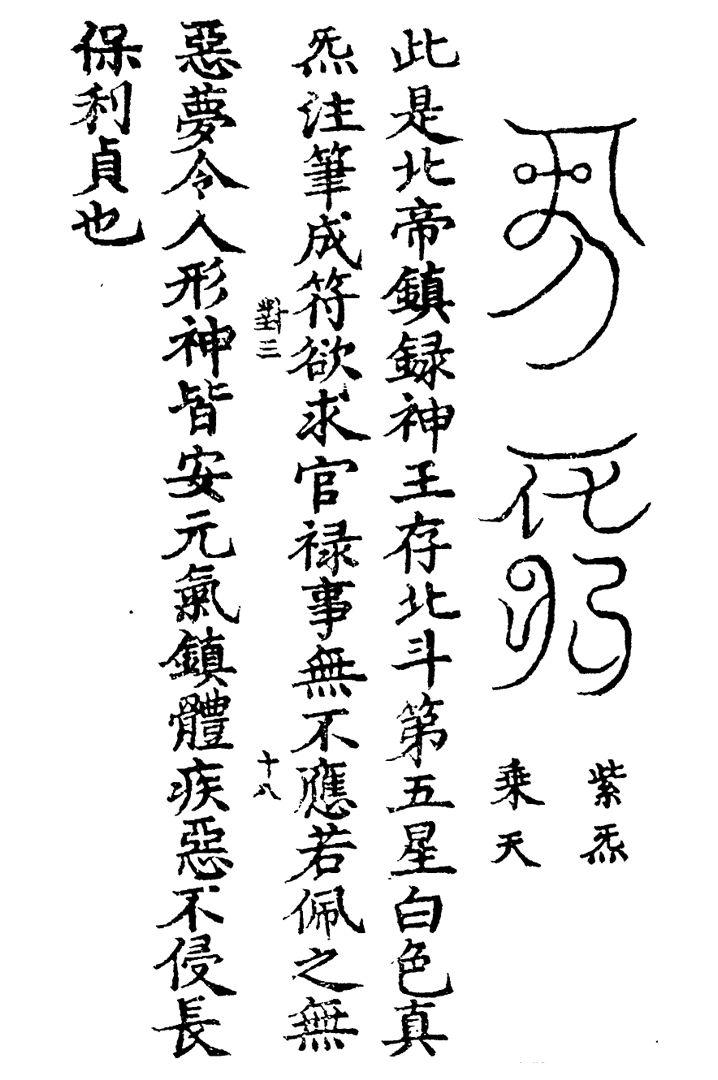 紫炁
乗天
此是北帝鎮録神王存北斗第五星白色真
炁注筆成符欲求官禄事無不應若佩之無
對三
十八
惡夢令人形神皆安元氣鎮體疾惡不侵長
保利貞也